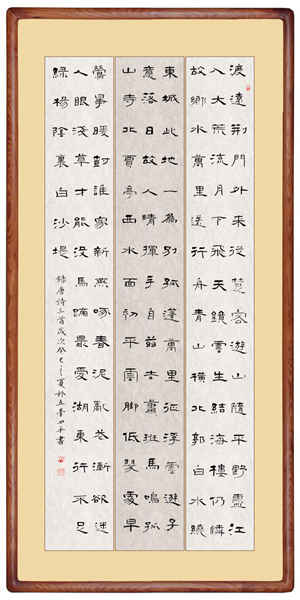 渡遠荆門外來從楚客遊山隨平野盡江
入大荒流月下飛天鏡雲生結海樓仍憐
故鄉水萬里送行舟青山橫北郭白水繞
東城此地一為別孤蓬萬里征浮雲遊子
意落日故人情揮手自茲去蕭班馬鳴孤
山寺北賈亭西水面初平雲脚低幾處早
鶯爭暖樹誰家新燕啄春泥亂花漸欲迷
人眼淺草才能沒馬蹄最愛湖東行不足
綠楊陰裏白沙堤
錄唐詩三首歲次癸巳之夏書